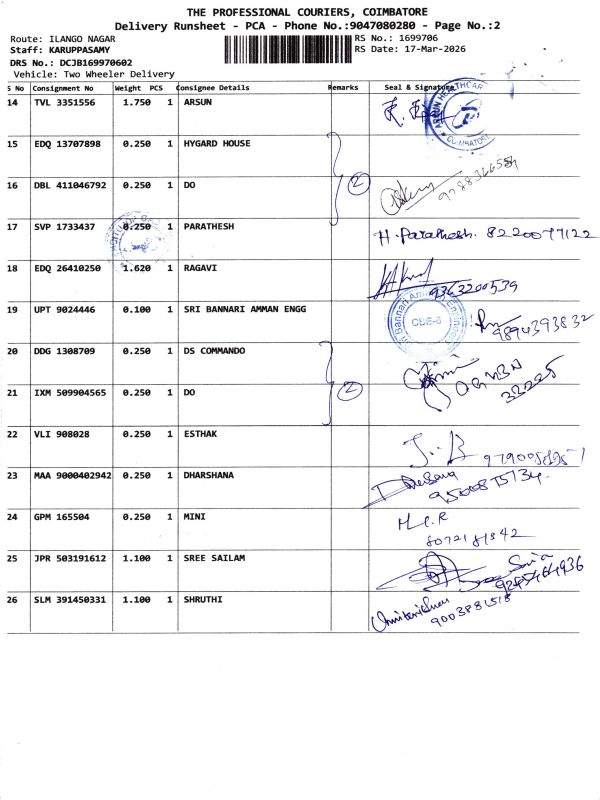 THE PROFESSIONAL COURIERS, COIMBATORE
Delivery Runsheet - PCA - Phone No.:9047080280 - Page No.:2
Route: ILANGO NAGAR
RS No.: 1699706
Staff: KARUPPASAMY
RS Date: 17-Mar-2026
DRS No.: DCJB169970602
Vehicle: Two Wheeler Delivery
S No Consignment No Weight PCS Consignee Details Remarks Seal & Signature
14 TVL 3351556 1.750 1 ARSUN
COIMBATORE
15 EDQ 13707898 0.250 1 HYGARD HOUSE
2
16 DBL 411046792 0.250 1 DO
17 SVP 1733437 0.250 1 PARATHESH H. Parathesh. 8220077122
18 EDQ 26410250 1.620 1 RAGAVI 9363200539
19 UPT 9024446 0.100 1 SRI BANNARI AMMAN ENGG CBE-6 9894393832
20 DDG 1308709 0.250 1 DS COMMANDO
2
21 IXM 509904565 0.250 1 DO 33225
22 VLI 908028 0.250 1 ESTHAK
23 MAA 9000402942 0.250 1 DHARSHANA
24 GPM 165504 0.250 1 MINI
25 JPR 503191612 1.100 1 SREE SAILAM
26 SLM 391450331 1.100 1 SHRUTHI 9003881518